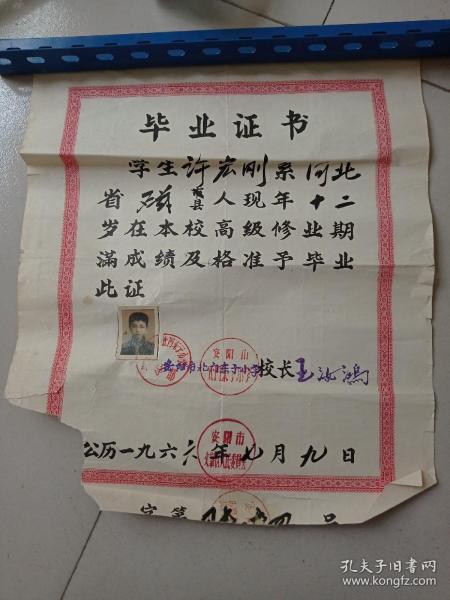 毕业证书
学生许宏刚系河北
省磁县人现年十二
岁在本校高级修业期
满成绩及格准予毕业
此证
安阳市
校长王
安阳市
公历一九六六年七月九日
字第
号
孔夫子旧书网
www.kongfz.com